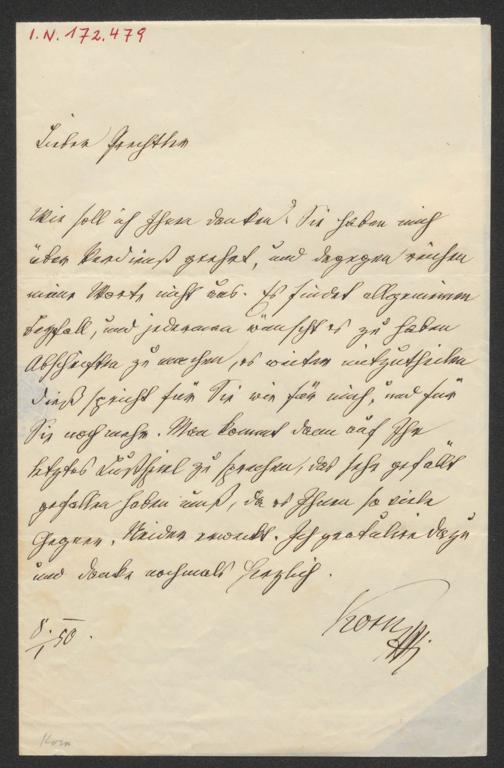 I.N. 172.479
Lieber Prechtler
Wie soll ich Ihnen danken? Sie haben mich
über Verdienst geehrt, und dagegen reichen
meine Worte nicht aus. Es findet allgemeinen
Beyfall, und jedermann wünscht es zu haben
Abschriften zu machen, es weiter mitzutheilen
dieß spricht für Sie wie für mich, und für
Sie noch mehr. Man kommt dann auf Ihr
letztes Lustspiel zu sprechen, das sehr
gefallen haben muß, da es Ihnen so viele
Gegner, Neider erweckt. Ich gratulire dazu
und danke nochmals herzlich.
Korn
8./1 50.
Korn